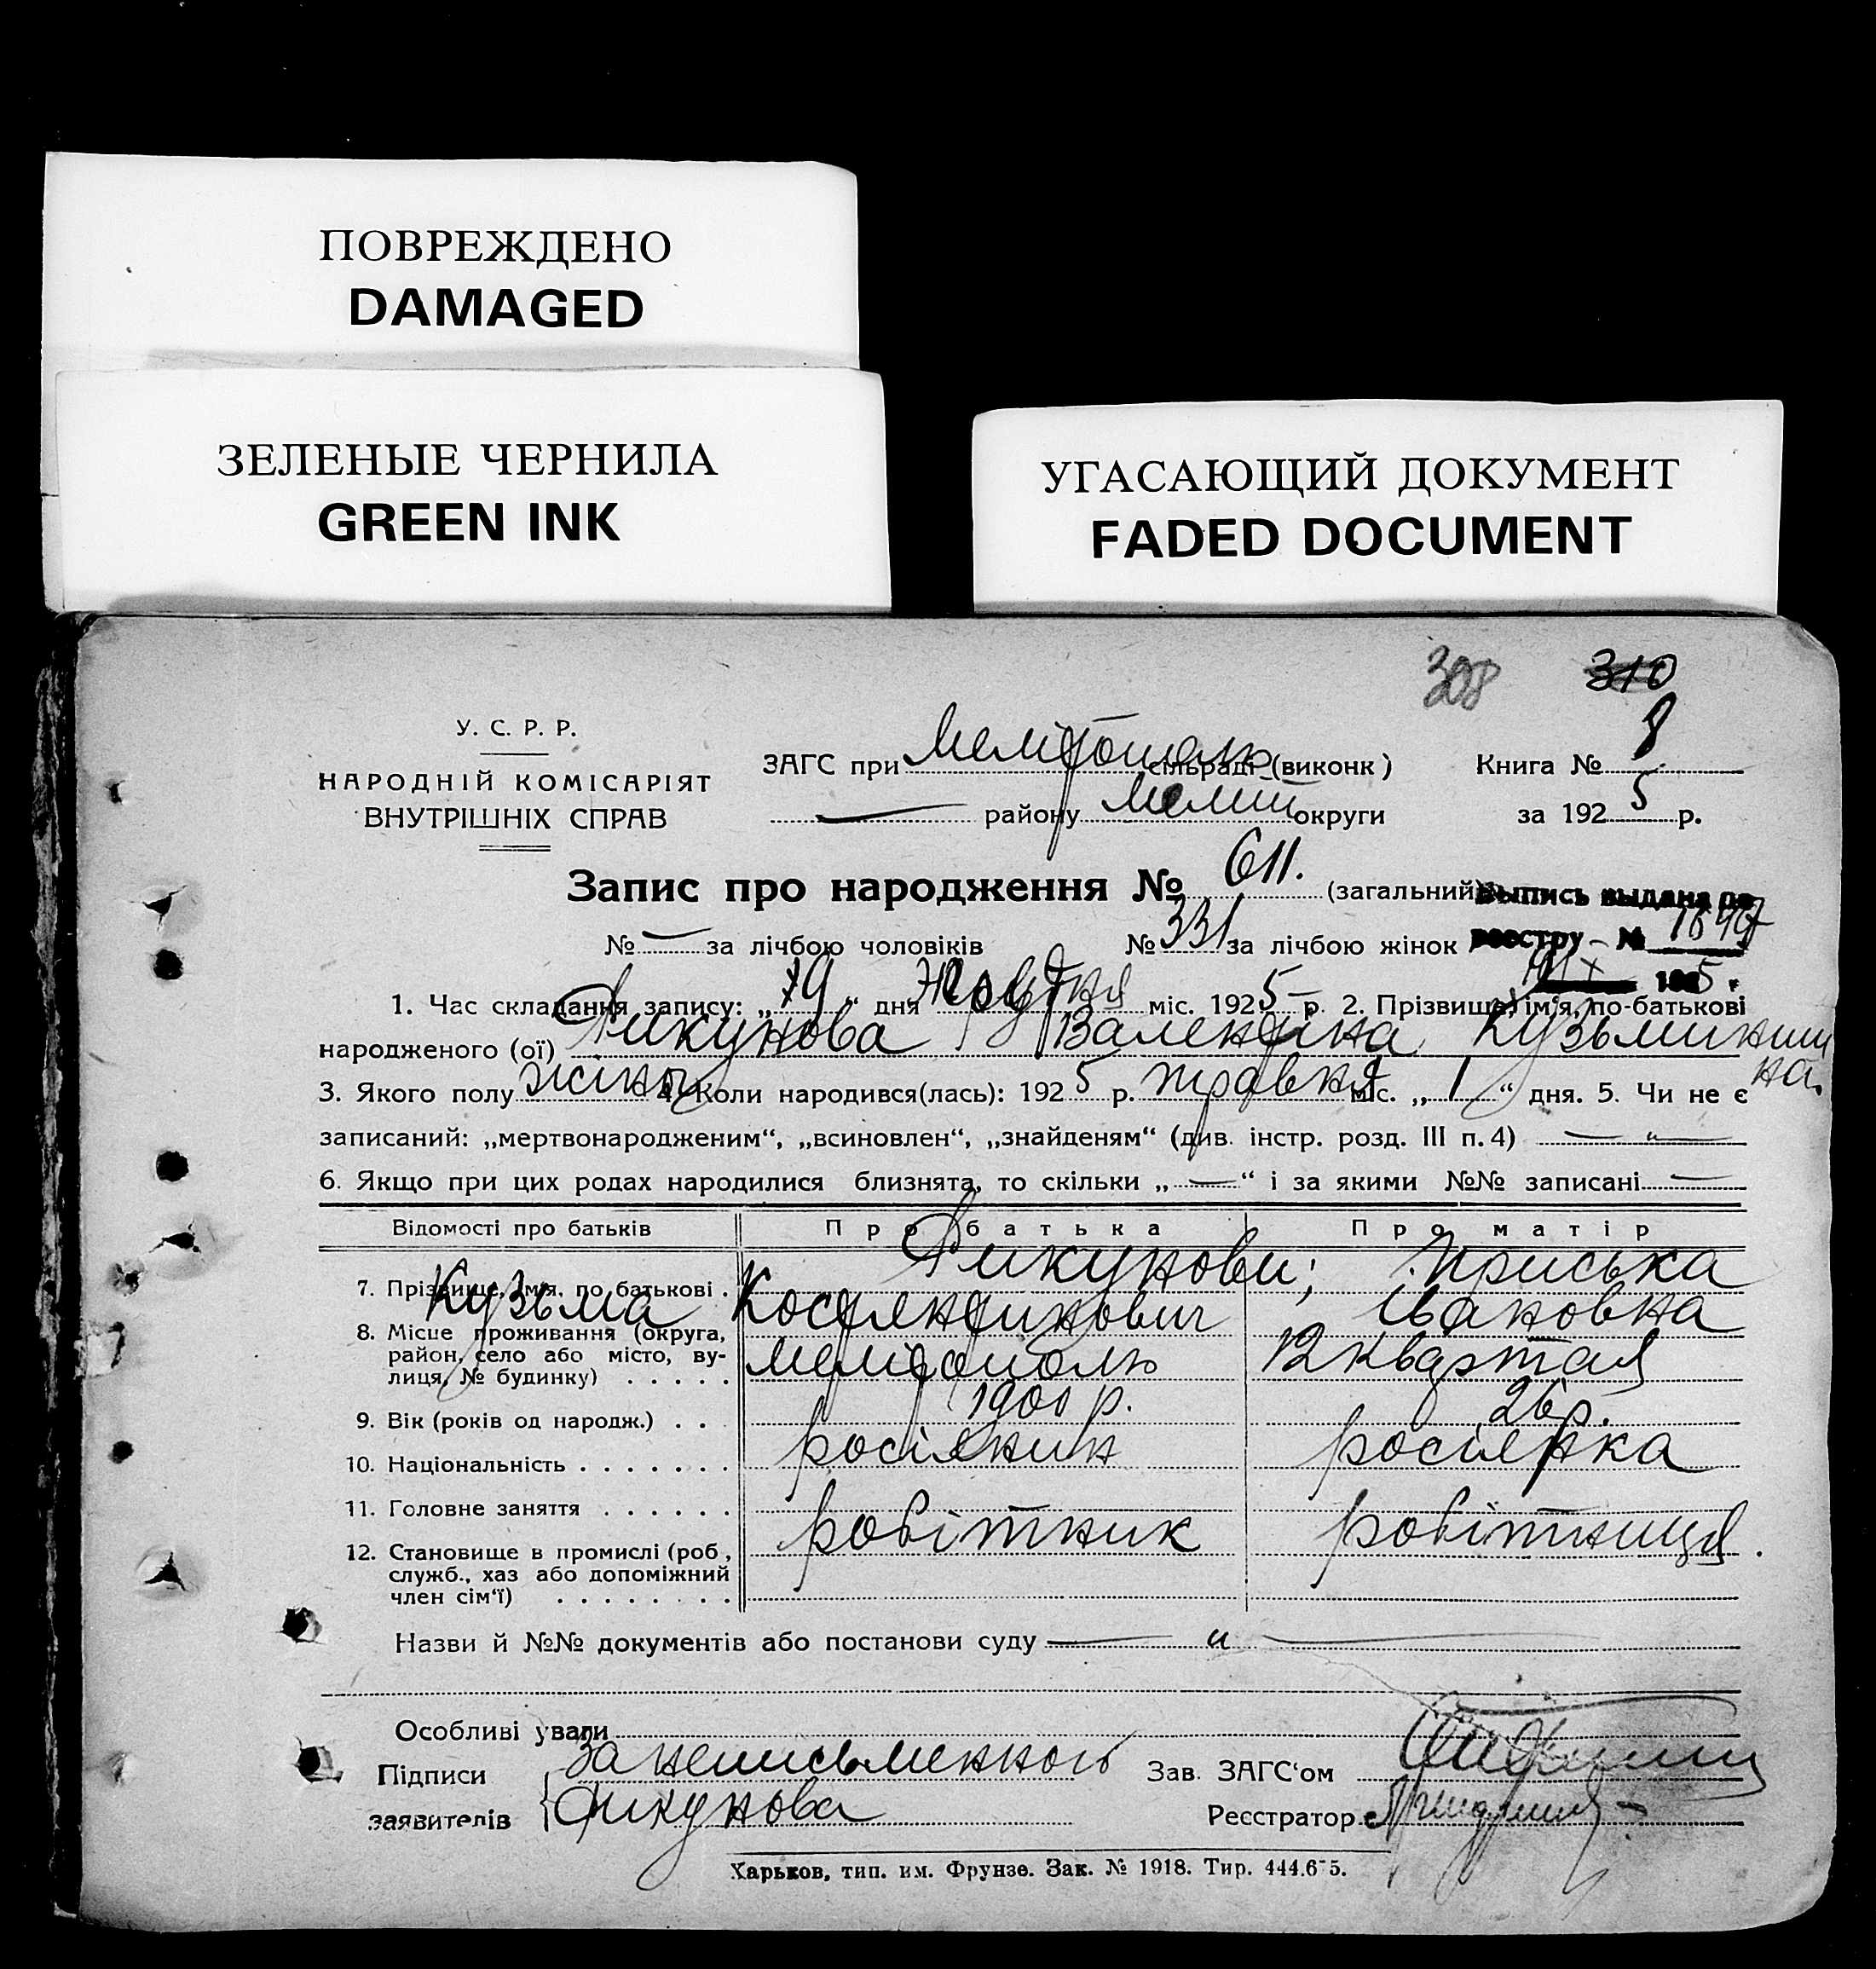 ПОВРЕЖДЕНО
DAMAGED
ЗЕЛЕНЫЕ ЧЕРНИЛА
GREEN INK
УГАСАЮЩИЙ ДОКУМЕНТ
FADED DOCUMENT
308 310
У. С. Р. Р.
НАРОДНІЙ КОМІСАРІЯТ
ВНУТРІШНІХ СПРАВ
ЗАГС при Мелітополь сільраді (виконк) Книга № 8
— району Меліт округи за 1925 р.
Запис про народження № 611. (загальний) Выпись выдана по
№ — за лічбою чоловіків № 331 за лічбою жінок реестру №
1. Час складання запису: „19“ дня міс. 1925 р. 2. Прізвище, ім‘я, по-батькові
народженого (ої) Дикунова Валентина Кузьминишна.
3. Якого полу жіноч 4. Коли народився(лась): 1925 р. травня міс. „1“ дня. 5. Чи не є
записаний: „мертвонародженим“, „всиновлен“, „знайденям“ (див. інстр. розд. III п. 4) — „ —
6. Якщо при цих родах народилися близнята, то скільки „—“ і за якими №№ записані —
Відомості про батьків Про батька Про матір
7. Прізвище, імя, по батькові . Дикунови; Приська
Кузьма Костянтинович Івановна
8. Місце проживання (округа, район, село або місто, вулиця, № будинку) . . . . . Мелітополь 12 квартал
9. Вік (років од народж.) . . . 1900 р. 26 р.
10. Національність . . . . . . . росіянин росіянка
11. Головне заняття . . . . . .
робітник робітниця.
12. Становище в промислі (роб., служб., хаз або допоміжний член сім‘ї) . . . . . . . .
Назви й №№ документів або постанови суду — „ —
Особливі уваги
Підписи За неписьменного Зав. ЗАГС‘ом
заявителів Дикунова Реєстратор
Харьков, тип. им. Фрунзе. Зак. № 1918. Тир. 444.6-5.